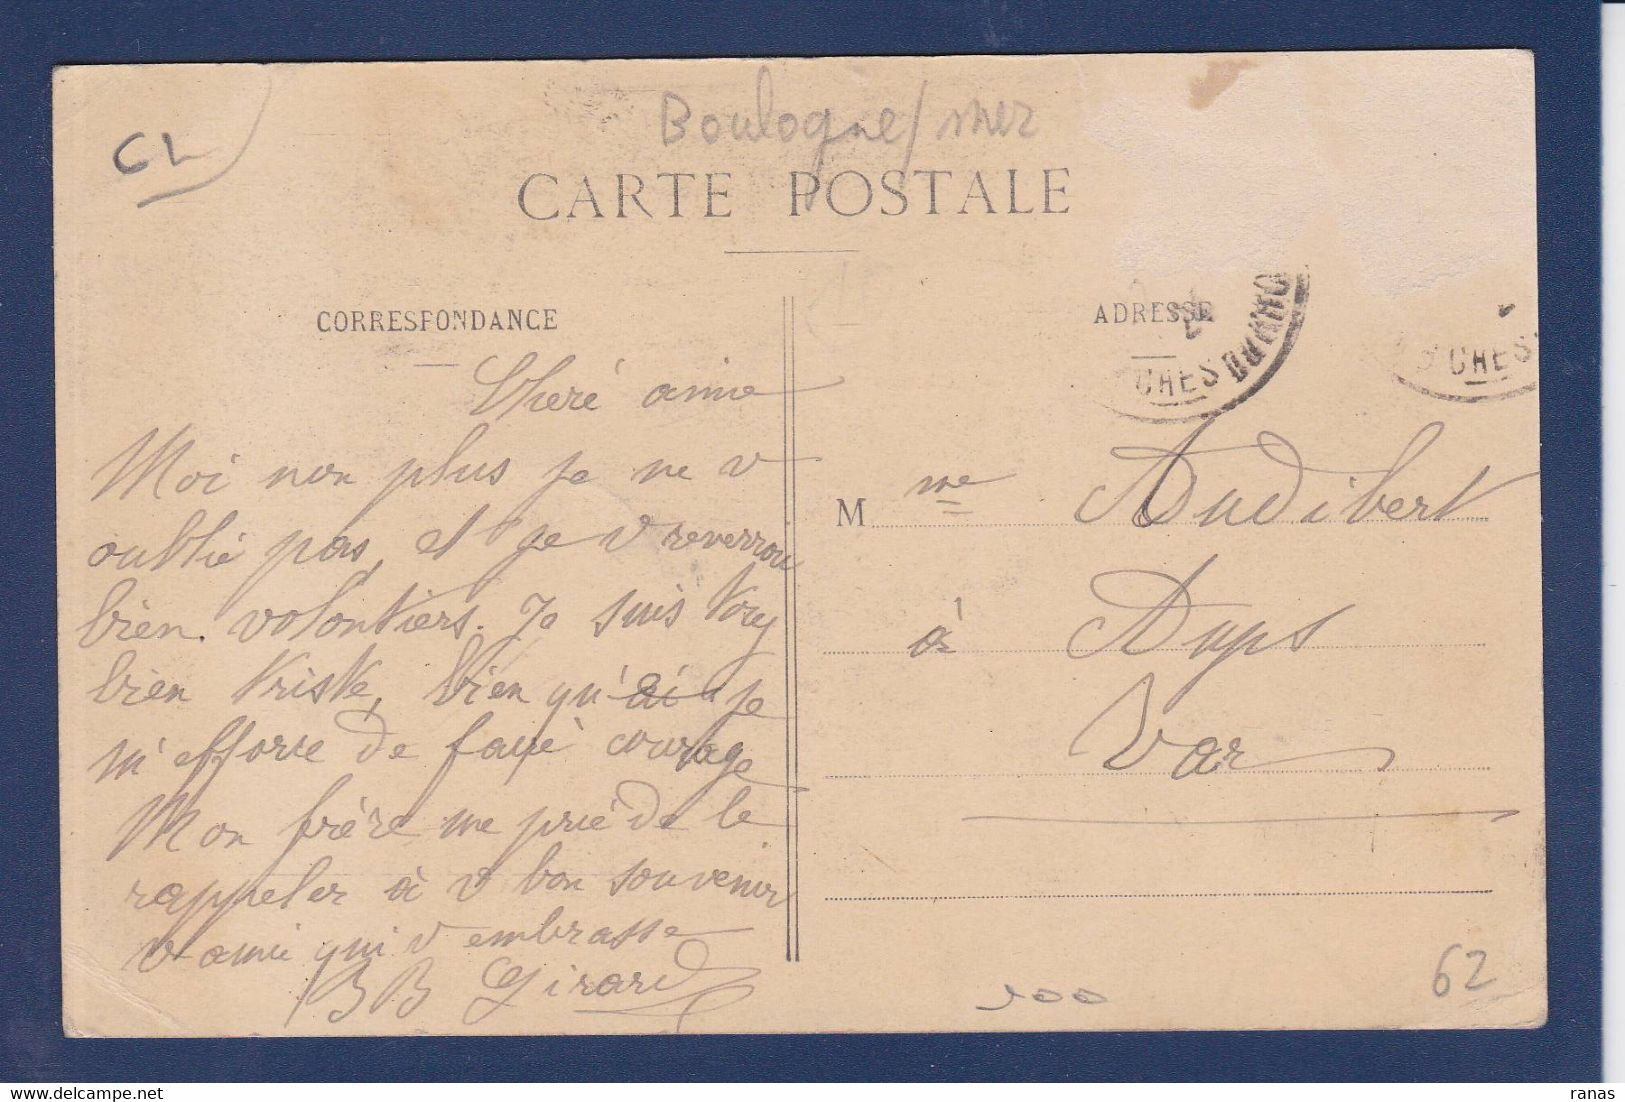 Boulogne/mer
CL
CARTE POSTALE
CORRESPONDANCE
ADRESSE
CHES DU RHO
CHES
Cheré amie
Moi non plus je ne v
oublié pas, et je v reverrai
bien volontiers. Je suis
bien triste, bien qu'ai je
m'efforce de faire courage
Mon frère me prie de le
rappeler à v bon souvenir
v amie qui v embrasse
BB Girard
M me Audibert
à Aups
Var
500
62
ranas